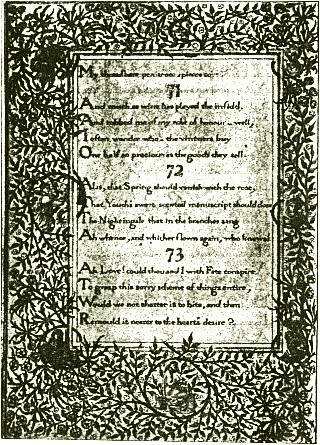 My threadbare penitence apieces to—
71
And much as wine has played the infidel,
And robbed me of my robe of honour—well,
I often wonder what the vintners buy
One half so precious as the goods they sell.
72
Alas, that Spring should vanish with the rose,
That Youth's sweet-scented manuscript should close
The Nightingale that in the branches sang
Ah whence, and whither flown again, who knows!
73
Ah Love! could thou and I with Fate conspire
To grasp this sorry scheme of things entire,
Would we not shatter it to bits, and then
Remould it nearer to the heart's desire?